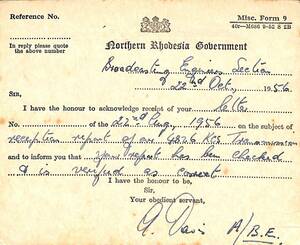 Reference No.
Misc. Form 9
40r—M086 9-52 S 2B
In reply please quote
the above number
Northern Rhodesia Government
Broadcasting Engineers Section
22nd Oct, 1956.
SIR,
I have the honour to acknowledge receipt of your letter
No. of the 22nd Aug. 1956 on the subject of
reception report of our 4826 Kc's Transmission
and to inform you that your report has been checked
& is verified as correct
I have the honour to be,
Sir,
Your obedient servant,
A/B.E.